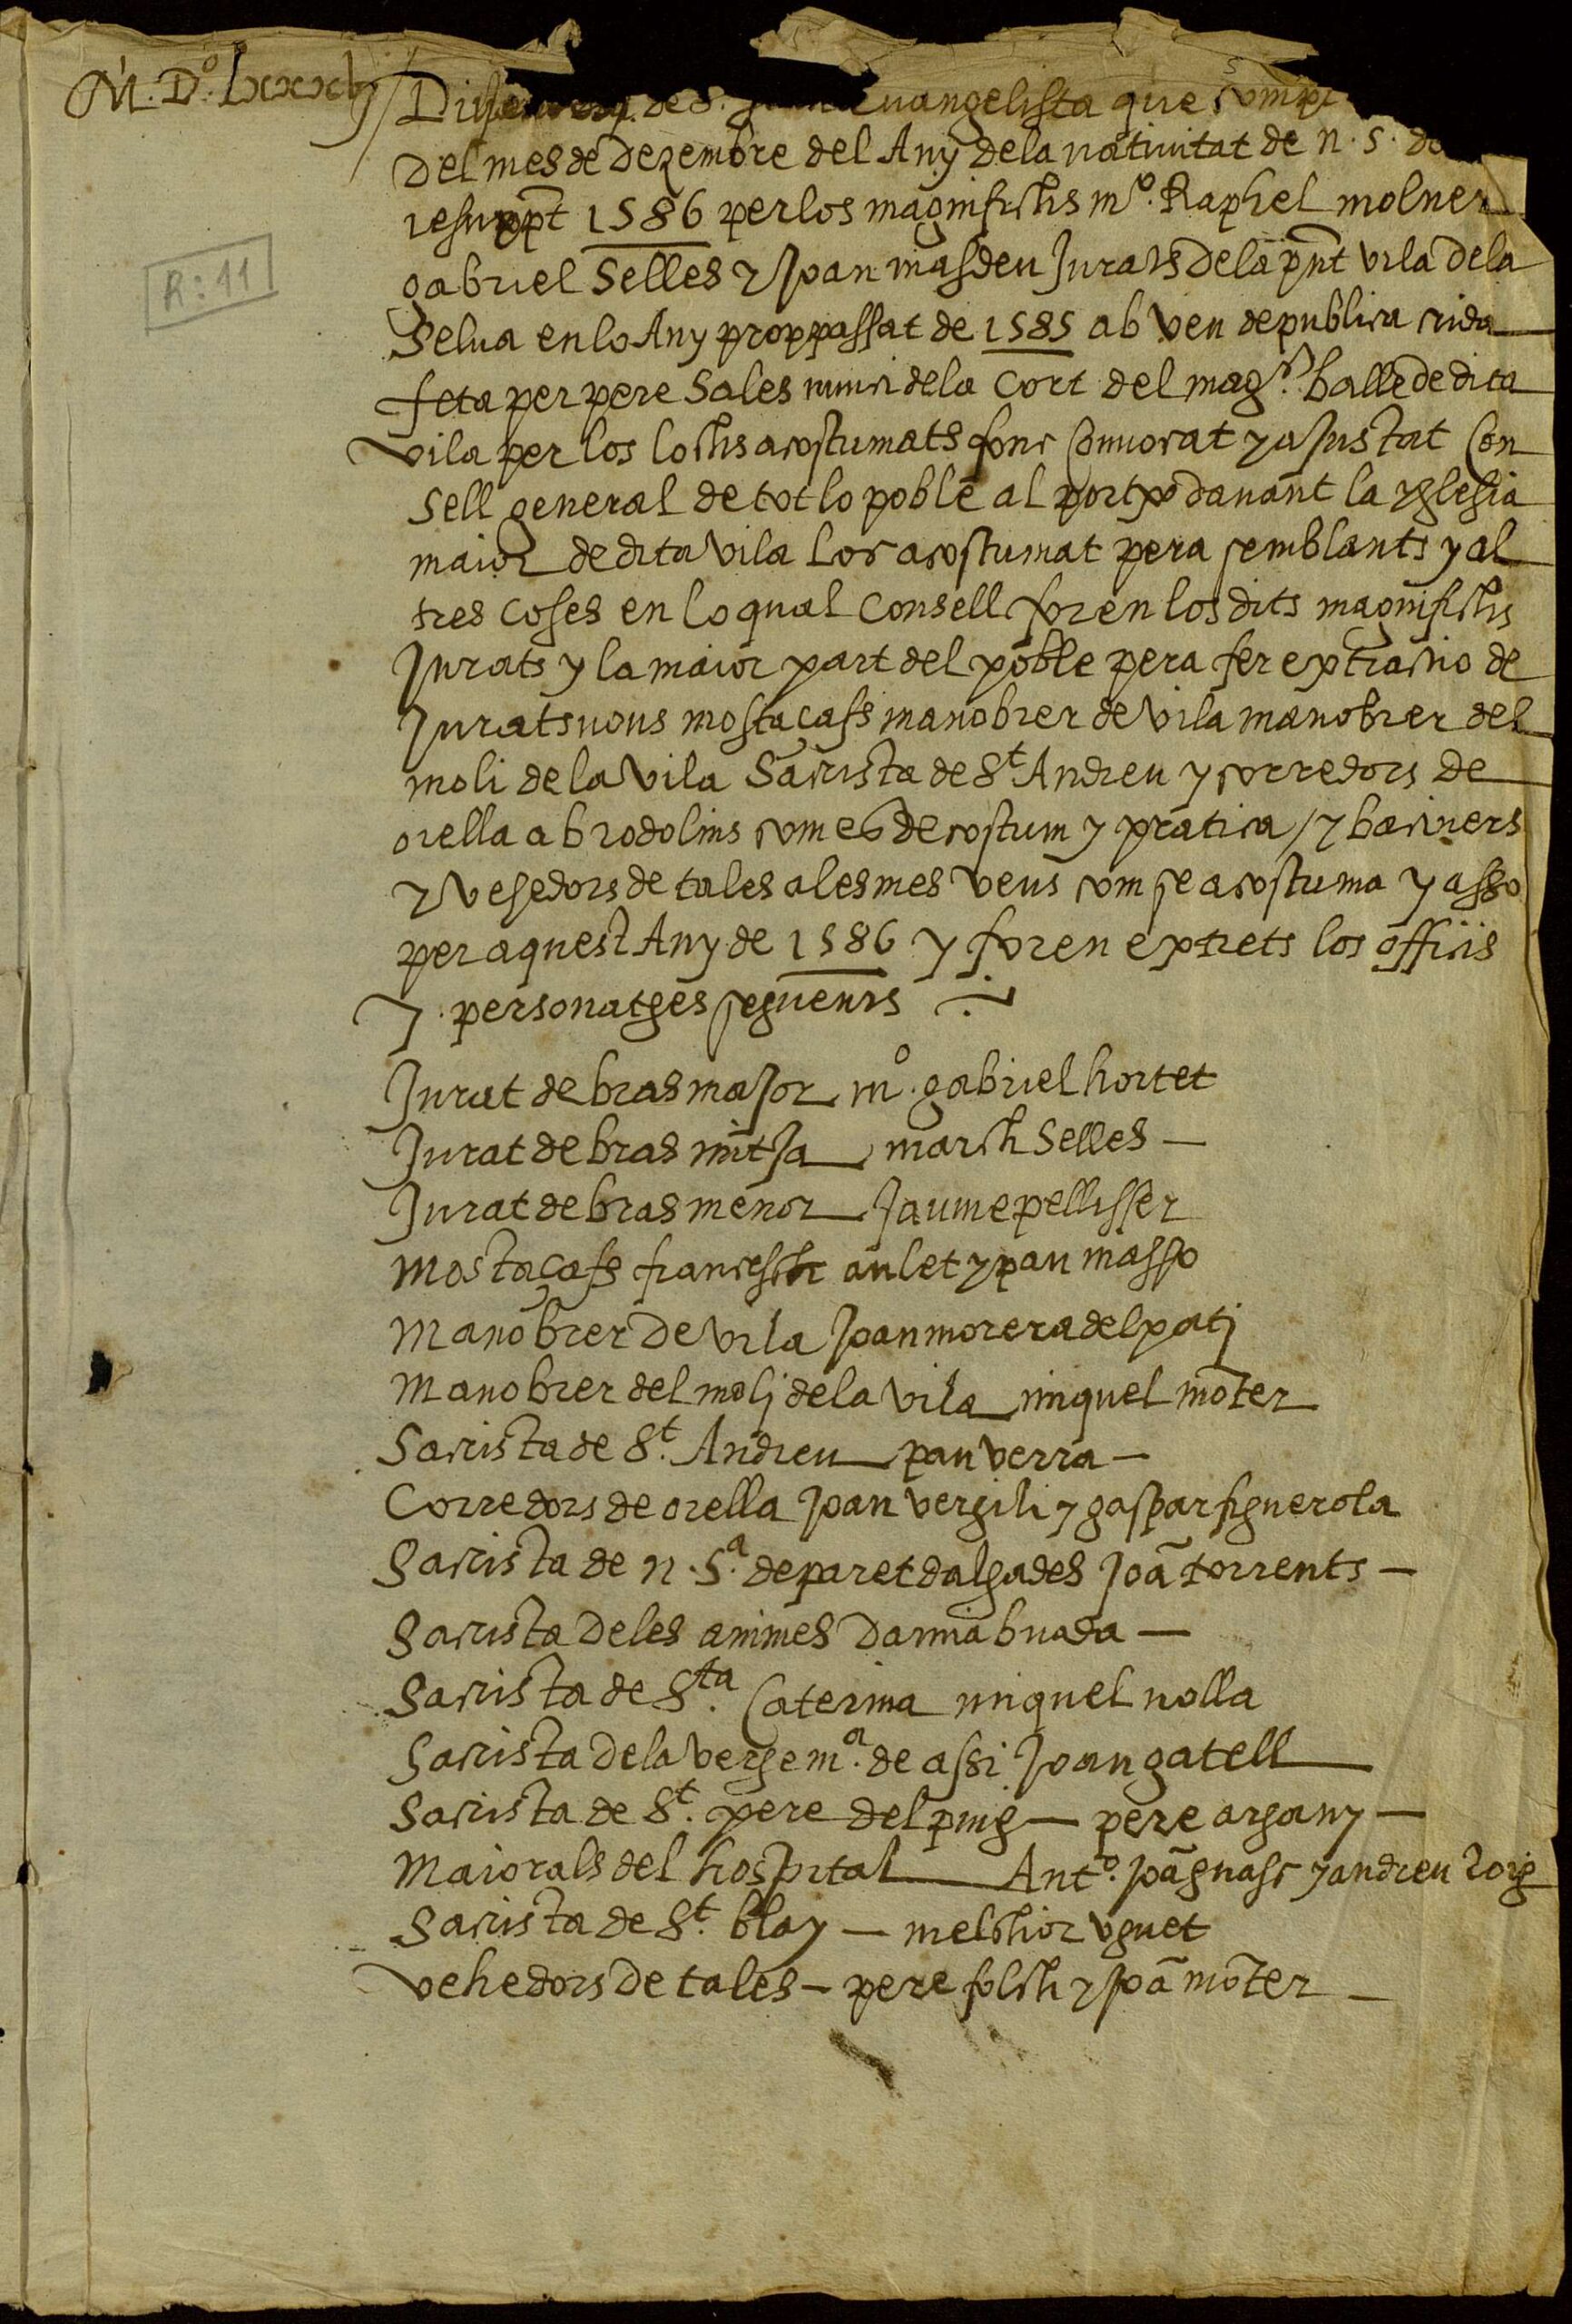 M.Dº.lxxxvj
de S. Evangelista que
Del mes de Dezembre del Any dela nativitat de n. s.
iesuxpt 1586 per los magnifichs mº. Raphel molner
gabriel Selles y Joan masdeu Jurats dela pnt vila dela
Selva en lo Any proppassat de 1585 ab veu de publica crida
feta per pere Sales nunci dela Cort del magch. balle de dita
vila per los lochs acostumats fonc Convocat y ajustat Con
sell general de tot lo poble al portxo davant la yglesia
maior de dita vila Loc acostumat pera semblants y al
tres coses en lo qual Consell foren los dits magnifichs
Jurats y la maior part del poble pera fer extractio de
Jurats nous mostaçafs manobrer de vila manobrer del
moli dela vila Sacrista de St. Andreu y corredors de
orella ab rodolins com es de costum y pratica / y baciners
y vehedors de tales ales mes veus com se acostuma y asso
per aquest Any de 1586 y foren extrets los officis
y personatges seguents
R:11
Jurat de bras major mº. gabriel hortet
Jurat de bras mitja march Selles —
Jurat de bras menor Jaume pellisser
mostaçafs francesch aulet y pau masso
manobrer De vila Joan morera del patj
manobrer del molj dela vila miquel moter
Sacrista de St. Andreu pau verra —
Corredors de orella Joan vergili y gaspar figuerola
Sacrista de n. Sª. de paret dalgades Joã torrents —
Sacrista Deles animes Damia buada —
Sacrista de Sta. Caterina miquel nolla
Sacrista Dela verge mª. de assi Joan gatell
Sacrista de St. pere del puig — pere argany —
maiorals del hospital Antº. Joã guasc y andreu roig
Sacrista de St. blay — melchior uguet
vehedors de tales — pere folch y Joã moter —